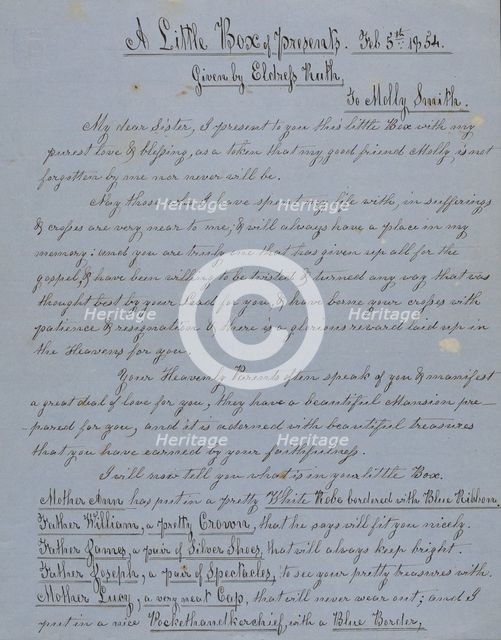 A Little Box of Presents. Feb 5th 1854.
Given by Eldress Ruth,
To Molly Smith.
My dear Sister, I present to you this little Box with my
purest love & blessing, as a token that my good friend Molly, is not
forgotten by me nor never will be.
Nay those who I have spent my life with, in sufferings
& crosses are very near to me; & will always have a place in my
memory: and you are truly one that has given up all for the
gospel, & have been willing to be twisted & turned any way that was
thought best by your Lead for you, & have borne your crosses with
patience & resignation. & there is a glorious reward laid up in
the Heavens for you.
Your Heavenly Parents often speak of you & manifest
a great deal of love for you; they have a beautiful Mansion pre-
-pared for you, and it is adorned with beautiful treasures
that you have earned by your faithfulness.
I will now tell you what is in your little Box.
Mother Ann has put in a pretty White Robe bordered with Blue Ribbon,
Father William, a pretty Crown, that he says will fit you nicely.
Father James, a pair of Silver Shoes, that will always keep bright.
Father Joseph, a pair of Spectacles, to see your pretty treasures with.
Mother Lucy, a very neat Cap, that will never wear out; and I
put in a nice Pockethandkerchief, with a Blue Border,
Heritage
Heritage
Heritage
Heritage
Heritage
Heritage
Heritage
Heritage